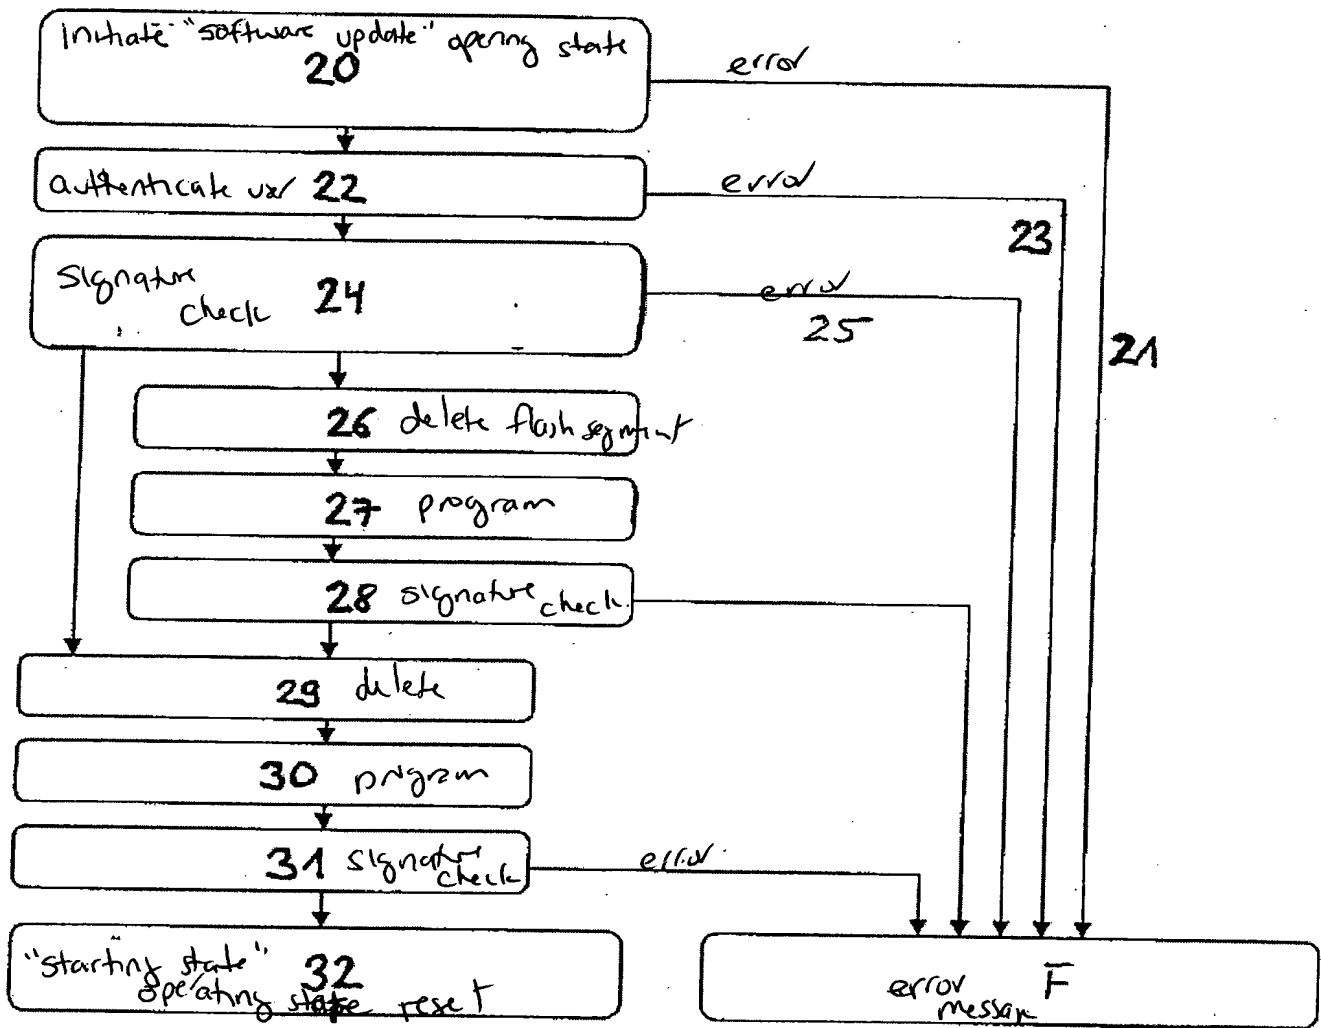 Initiate "software update" opering state
20
error
authenticate user 22
error
23
signature
check 24
error
25
21
26 delete flash segment
27 program
28 signature
check
29 delete
30 program
31 signature
check
error
"starting state"
32
operating state reset
error F
message